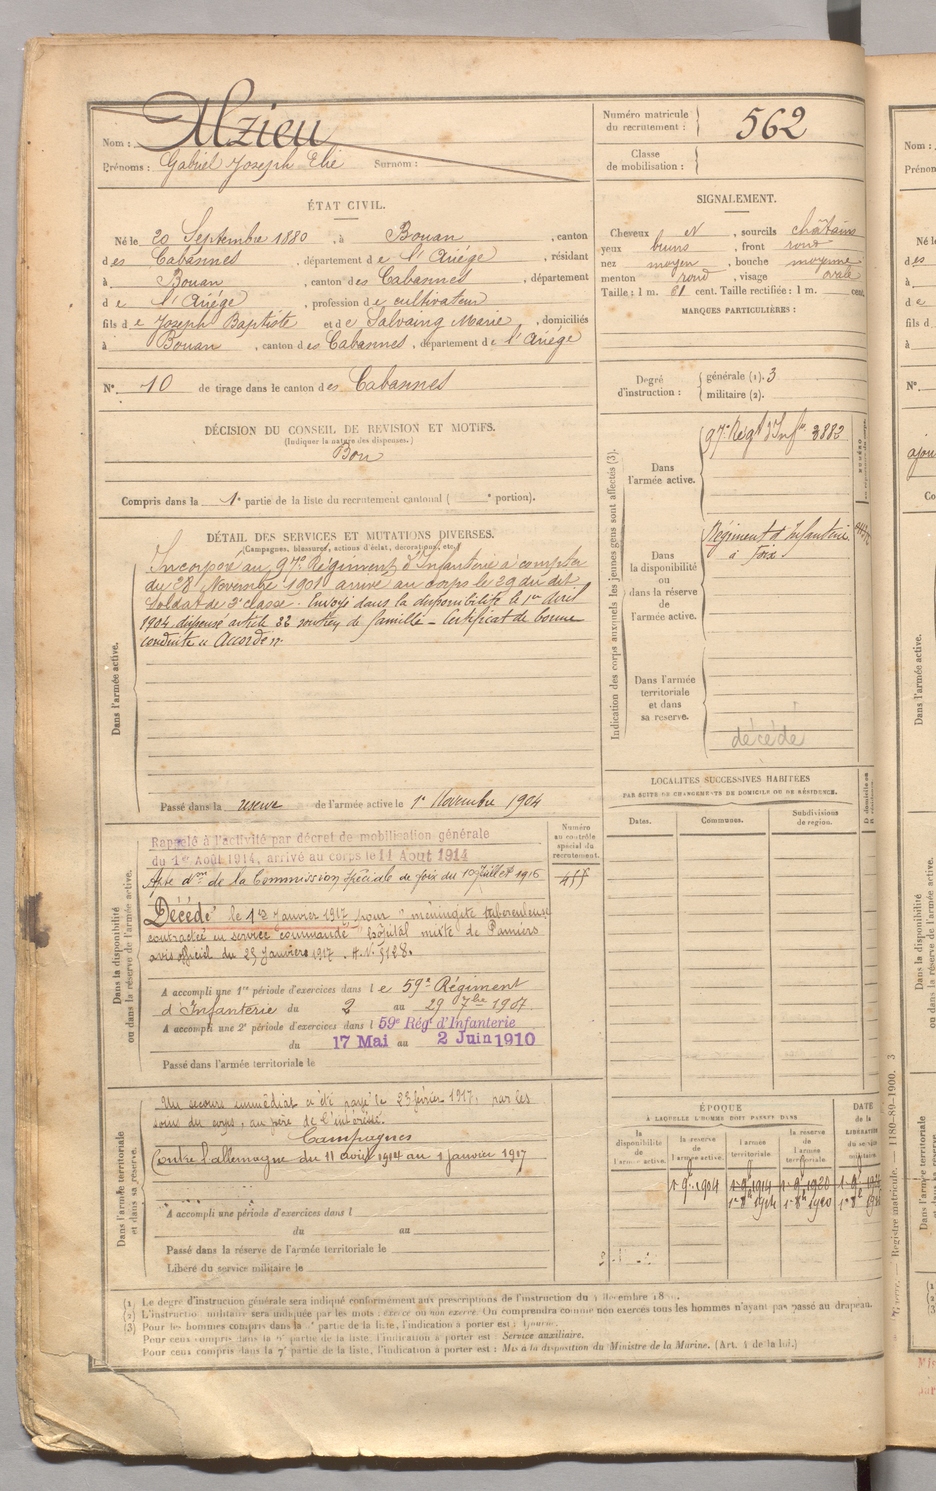 Nom : Alzieu
Prénoms : Gabriel Joseph Elie Surnom :
Numéro matricule du recrutement : 562
Classe de mobilisation :
ÉTAT CIVIL.
Né le 20 Septembre 1880, à Bouan, canton
des Cabannes, département de l'Ariége, résidant
à Bouan, canton des Cabannes, département
de l'Ariége, profession de cultivateur
fils de Joseph Baptiste et de Salvaing Marie, domiciliés
à Bouan, canton des Cabannes, département de l'Ariége
N° 10 de tirage dans le canton des Cabannes
SIGNALEMENT.
Cheveux N, sourcils châtains
yeux bruns, front rond
nez moyen, bouche moyenne
menton rond, visage ovale
Taille : 1 m. 61 cent. Taille rectifiée : 1 m. cent.
MARQUES PARTICULIÈRES :
Degré d'instruction : générale (1). 3
militaire (2).
DÉCISION DU CONSEIL DE REVISION ET MOTIFS.
(Indiquer la nature des dispenses.)
Bon
Compris dans la 1e partie de la liste du recrutement cantonal ( e portion).
DÉTAIL DES SERVICES ET MUTATIONS DIVERSES.
(Campagnes, blessures, actions d'éclat, décorations, etc.)
Dans l'armée active.
Incorporé au 97e Régiment d'Infanterie à compter
du 28 Novembre 1901 arrivé au corps le 29 du dit
Soldat de 2e classe. Envoyé dans la disponibilité le 1er Avril
1904, dispensé article 22 soutien de famille - Certificat de bonne
conduite "Accordé".
Passé dans la réserve de l'armée active le 1er Novembre 1904
Indication des corps auxquels les jeunes gens sont affectés (3).
Dans l'armée active.
97e Regt d'Infie 3882
Dans la disponibilité ou dans la réserve de l'armée active.
Régiment d'Infanterie
à Foix
Dans l'armée territoriale et dans sa réserve.
décédé
LOCALITÉS SUCCESSIVES HABITÉES
PAR SUITE DE CHANGEMENTS DE DOMICILE OU DE RÉSIDENCE.
Dates. Communes. Subdivisions de region.
Dans la disponibilité ou dans la réserve de l'armée active.
Numéro au contrôle spécial du recrutement.
Rappelé à l'activité par décret de mobilisation générale
du 1er Août 1914, arrivé au corps le 11 Aout 1914
de la Commission spéciale de foix du 10 Juillet 1916
Décédé le 1er Janvier 1917 pour "méningite tuberculeuse
contractée en service commandé" hopital mixte de Pamiers
avis officiel du 25 Janvier 1917.
A accompli une 1re période d'exercices dans le 59e Régiment
d'Infanterie du 2 au 29 7bre 1907
A accompli une 2e période d'exercices dans l 59e Rég. d'Infanterie
du 17 Mai au 2 Juin 1910
Passé dans l'armée territoriale le
Dans l'armée territoriale et dans sa réserve.
Un secours immédiat a été payé le 23 février 1917, par les
soins du corps, au père de l'intéressé.
Campagnes
Contre l'allemagne du 11 août 1914 au 1 janvier 1917
A accompli une période d'exercices dans l
du au
Passé dans la réserve de l'armée territoriale le
Libéré du service militaire le
ÉPOQUE
À LAQUELLE L'HOMME DOIT PASSER DANS
la disponibilité de l'armée active. la réserve de l'armée active. l'armée territoriale. la réserve de l'armée territoriale. DATE de la LIBÉRATION du service militaire
1er 9bre 1904 1er 9bre 1914 1er 9bre 1920
1er 8bre 1914 1er 8bre 1920
(1) Le degré d'instruction générale sera indiqué conformément aux prescriptions de l'instruction du
(2) L'instruction militaire sera indiquée par les mots : exercé ou non exercé. On comprendra comme non exercés tous les hommes n'ayant pas passé au drapeau.
(3) Pour les hommes compris dans la partie de la liste, l'indication à porter est : Ajourné.
Pour ceux compris dans la partie de la liste, l'indication à porter est : Service auxiliaire.
Pour ceux compris dans la 7e partie de la liste, l'indication à porter est : Mis à la disposition du Ministre de la Marine. (Art. 4 de la loi.)
Registre matricule. — 1180-89-1900. 3